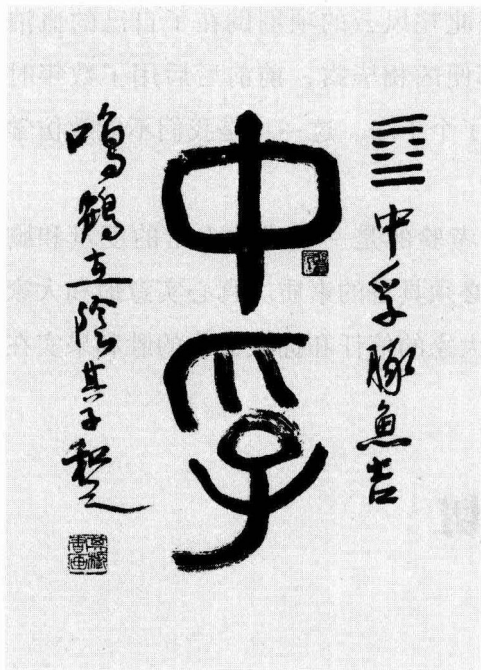 ䷼中孚豚魚吉
中孚
鳴鶴在陰其子和之